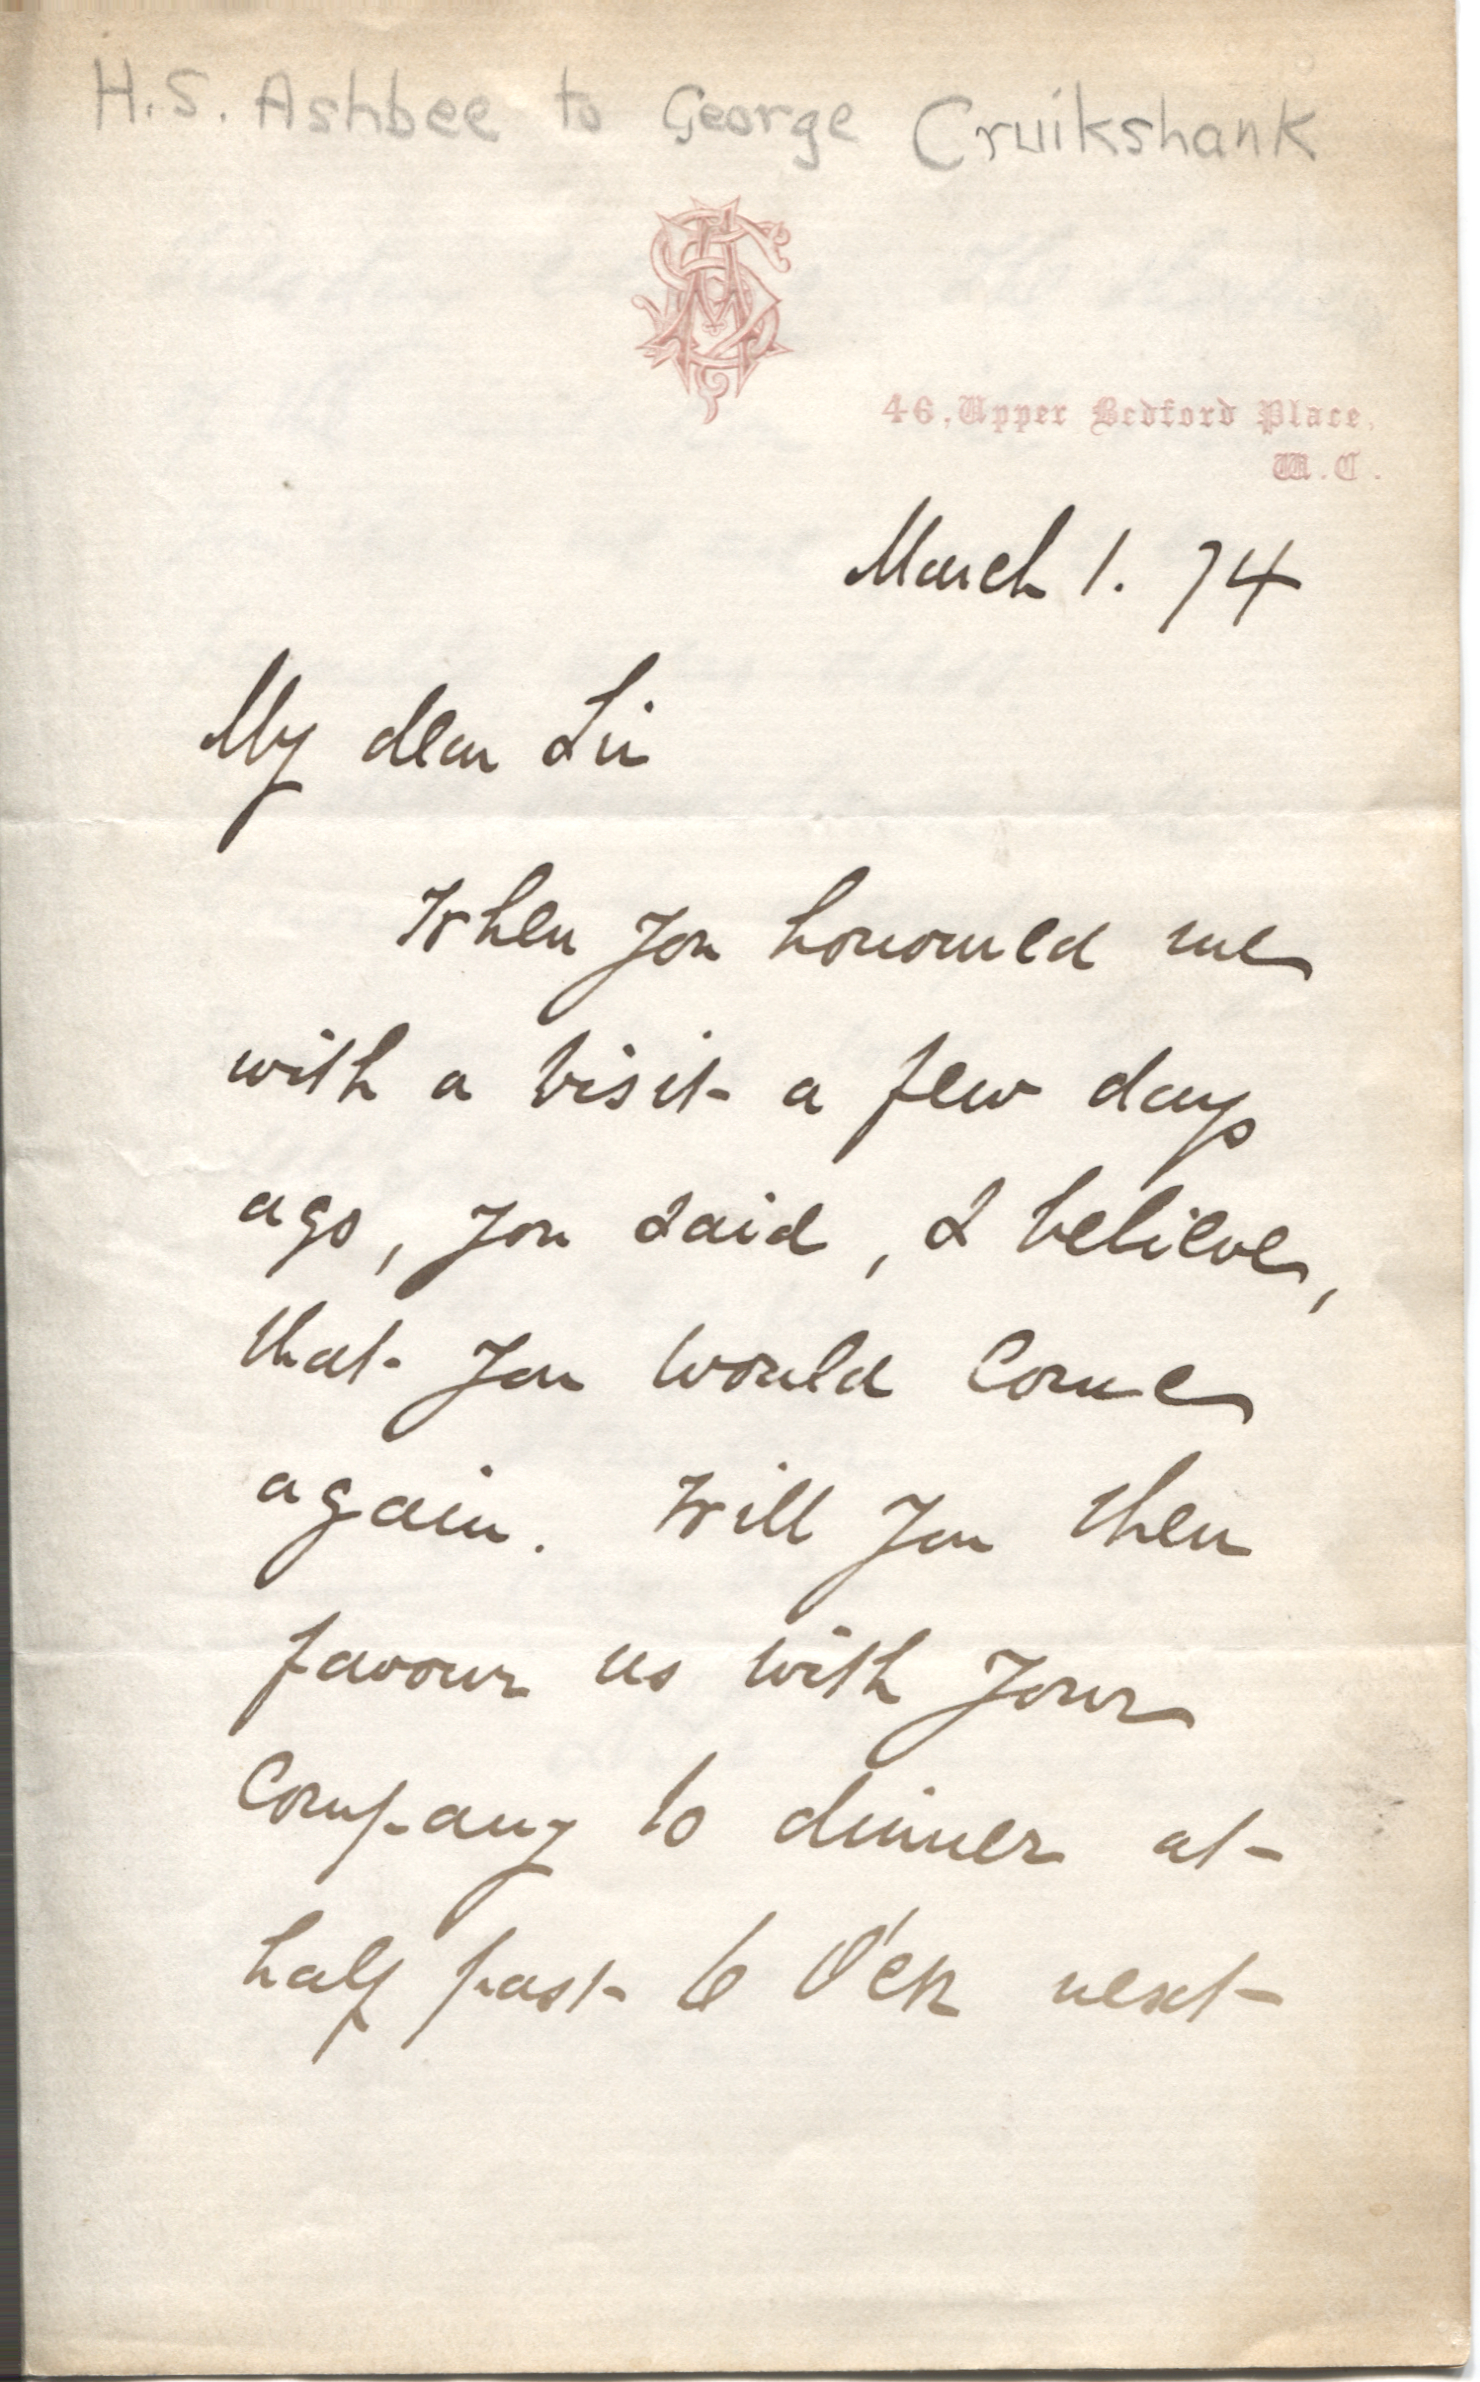 H.S. Ashbee to George Cruikshank
46, Upper Bedford Place,
W.C.
March 1. 74
My dear Sir
When you honoured me
with a visit a few days
ago, you said, I believe,
that you would come
again. Will you then
favour us with your
company to dinner at
half past 6 O'ck next